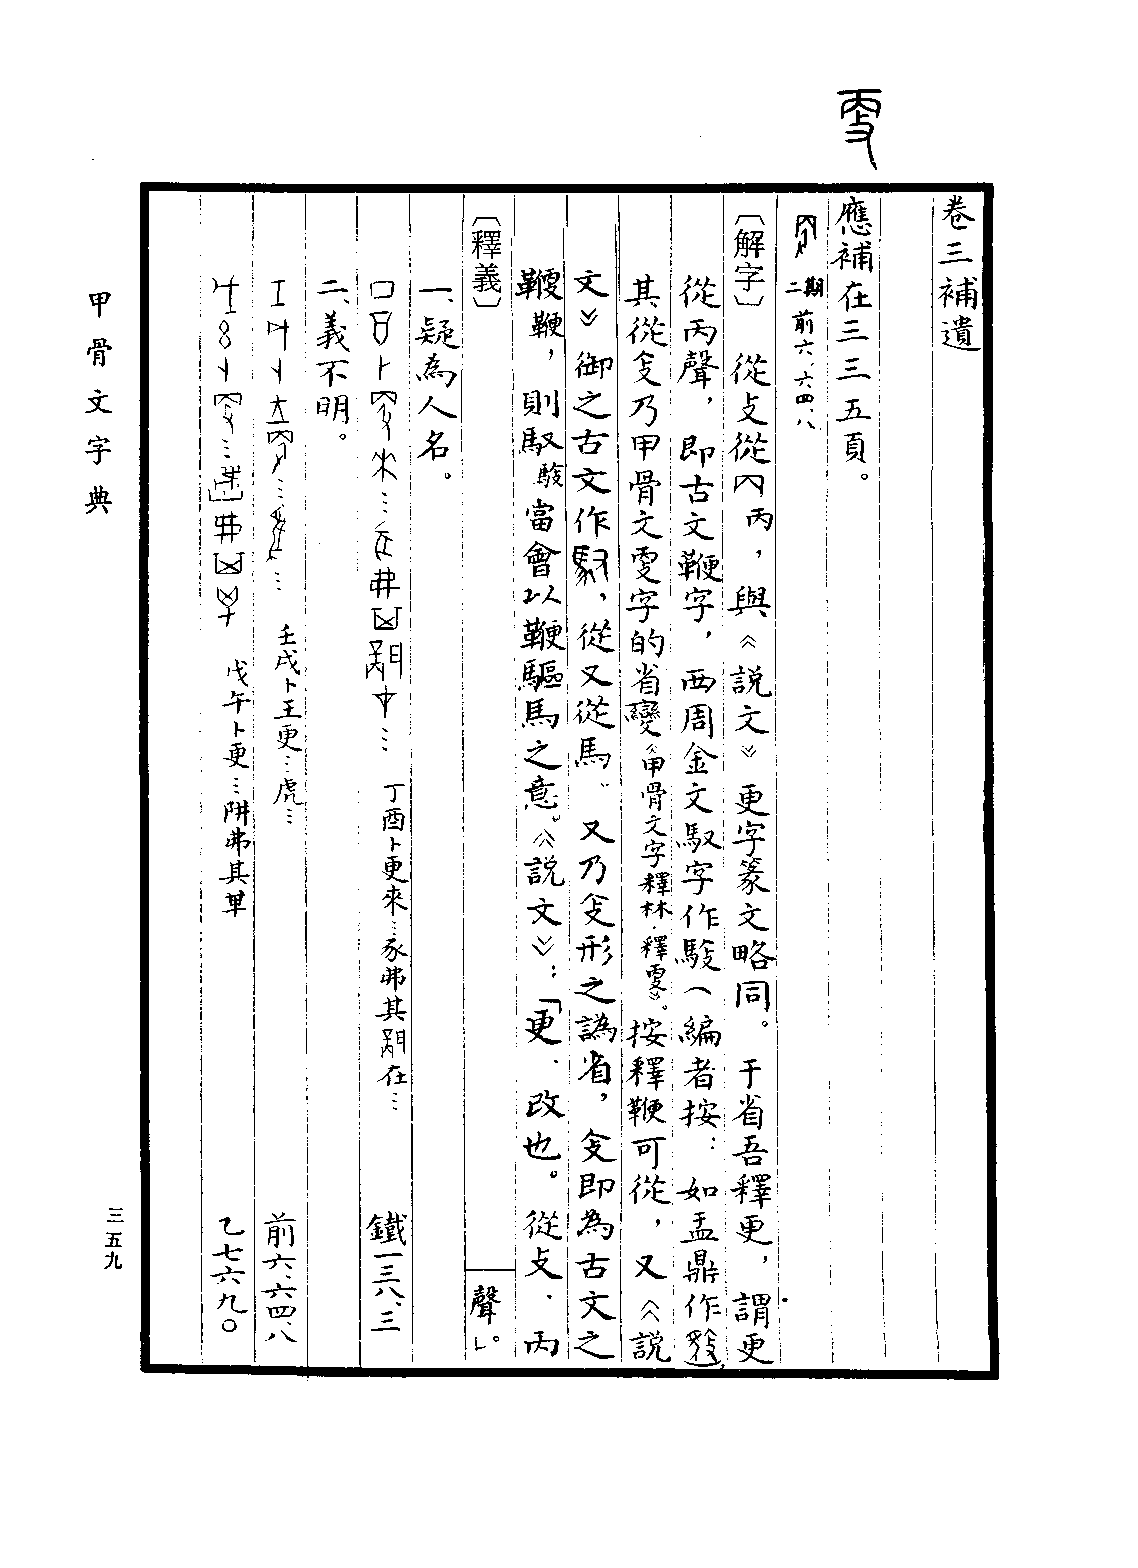 卷三補遺
應補在三三五頁。
二期 前六、六四、八
〔解字〕 從攴從丙，與《說文》更字篆文略同。于省吾釋更，謂更
從丙聲，即古文鞭字，西周金文馭字作（編者按：如盂鼎作
其從㪅乃甲骨文㪅字的省變《甲骨文字釋林·釋㪅》。按釋鞭可從，又《說
文》御之古文作馭，從又從馬、又乃形之譌省，即為古文之
鞭，則馭當會以鞭驅馬之意。《說文》：「更、改也。從攴、丙
聲」。
〔釋義〕
一、疑為人名。
丁酉卜更來…豕弗其在… 鐵一三八、三
二、義不明。
壬戌卜王更…虎… 前六、六四、八
戊午卜更…阱弗其𢆉 乙七六九〇
甲骨文字典
三五九